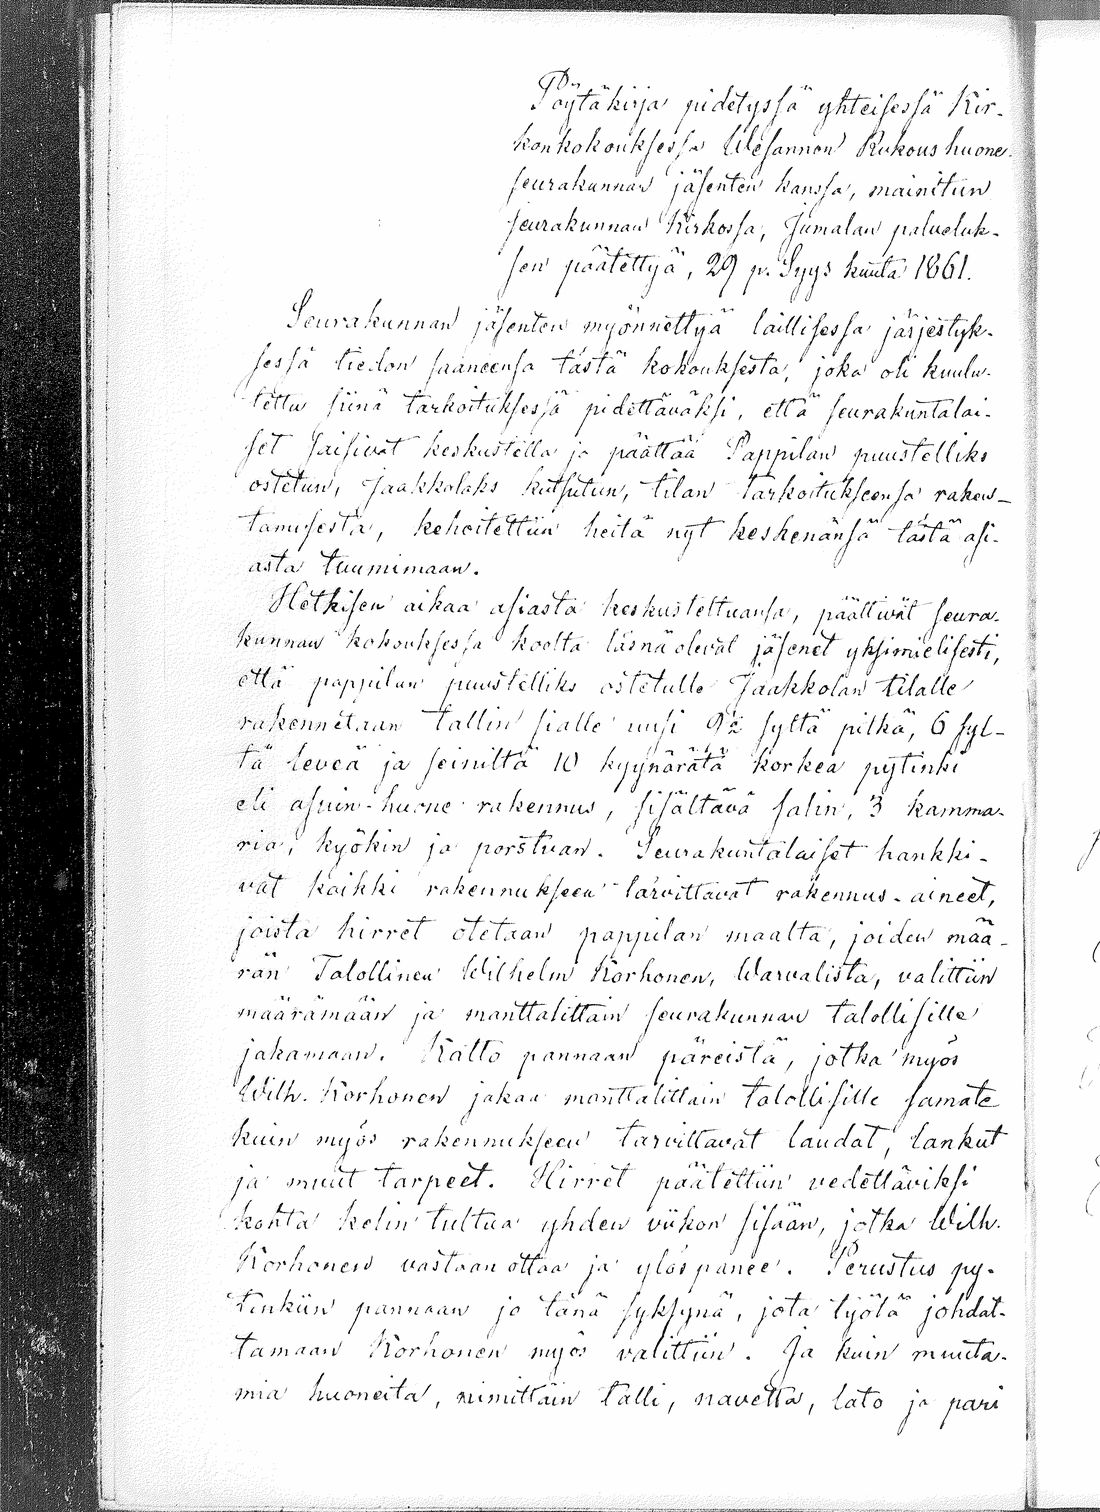 Pöytäkirja pidetyssä yhteisessä Kir-
konkokouksessa Wesannon Rukoushuone-
seurakunnan jäsenten kanssa, mainitun
seurakunnan Kirkossa, Jumalan palveluk-
sen päätettyä, 29 p. Syys kuuta 1861.
Seurakunnan jäsenten myönnettyä laillisessa järjestyk-
sessä tiedon saaneensa tästä kokouksesta, joka oli kuulu-
tettu siinä tarkoituksessa pidettäväksi, että seurakuntalai-
set saisivat keskustella ja päättää Pappilan puustelliks
ostetun, Jaakkolaks kutsutun, tilan tarkoitukseensa raken-
tamisesta, kehoitettiin heitä nyt keskenänsä tästä asi-
asta tuumimaan.
Hetkisen aikaa asiasta keskusteltuansa, päättivät seura-
kunnan kokouksessa koolta läsnäolevat jäsenet yksimielisesti,
että pappilan puustelliks ostetulle Jaakkolan tilalle
rakennetaan tallin sialle uusi 9½ syltä pitkä, 6 syl-
tä leveä ja seiniltä 10 kyynärätä korkea pytinki
eli asuin-huone rakennus, sisältävä salin, 3 kamma-
ria, kyökin ja porstuan. Seurakuntalaiset hankki-
vat kaikki rakennukseen tarvittavat rakennus-aineet,
joista hirret otetaan pappilan maalta, joiden mää-
rän Talollinen Wilhelm Korhonen, Warvalista, valittiin
määrämään ja manttalittain seurakunnan talollisille
jakamaan. Katto pannaan päreistä, jotka myös
Wilh. Korhonen jakaa manttalittain talollisille samate
kuin myös rakennukseen tarvittavat laudat, lankut
ja muut tarpeet. Hirret päätettiin vedettäviksi
kohta kelin tultua yhden viikon sisään, jotka Wilh.
Korhonen vastaan ottaa ja ylöspanee. Perustus py-
tinkiin pannaan jo tänä syksynä, jota työtä johdat-
tamaan Korhonen myös valittiin. Ja kuin muuta-
mia huoneita, nimittäin talli, navetta, lato ja pari